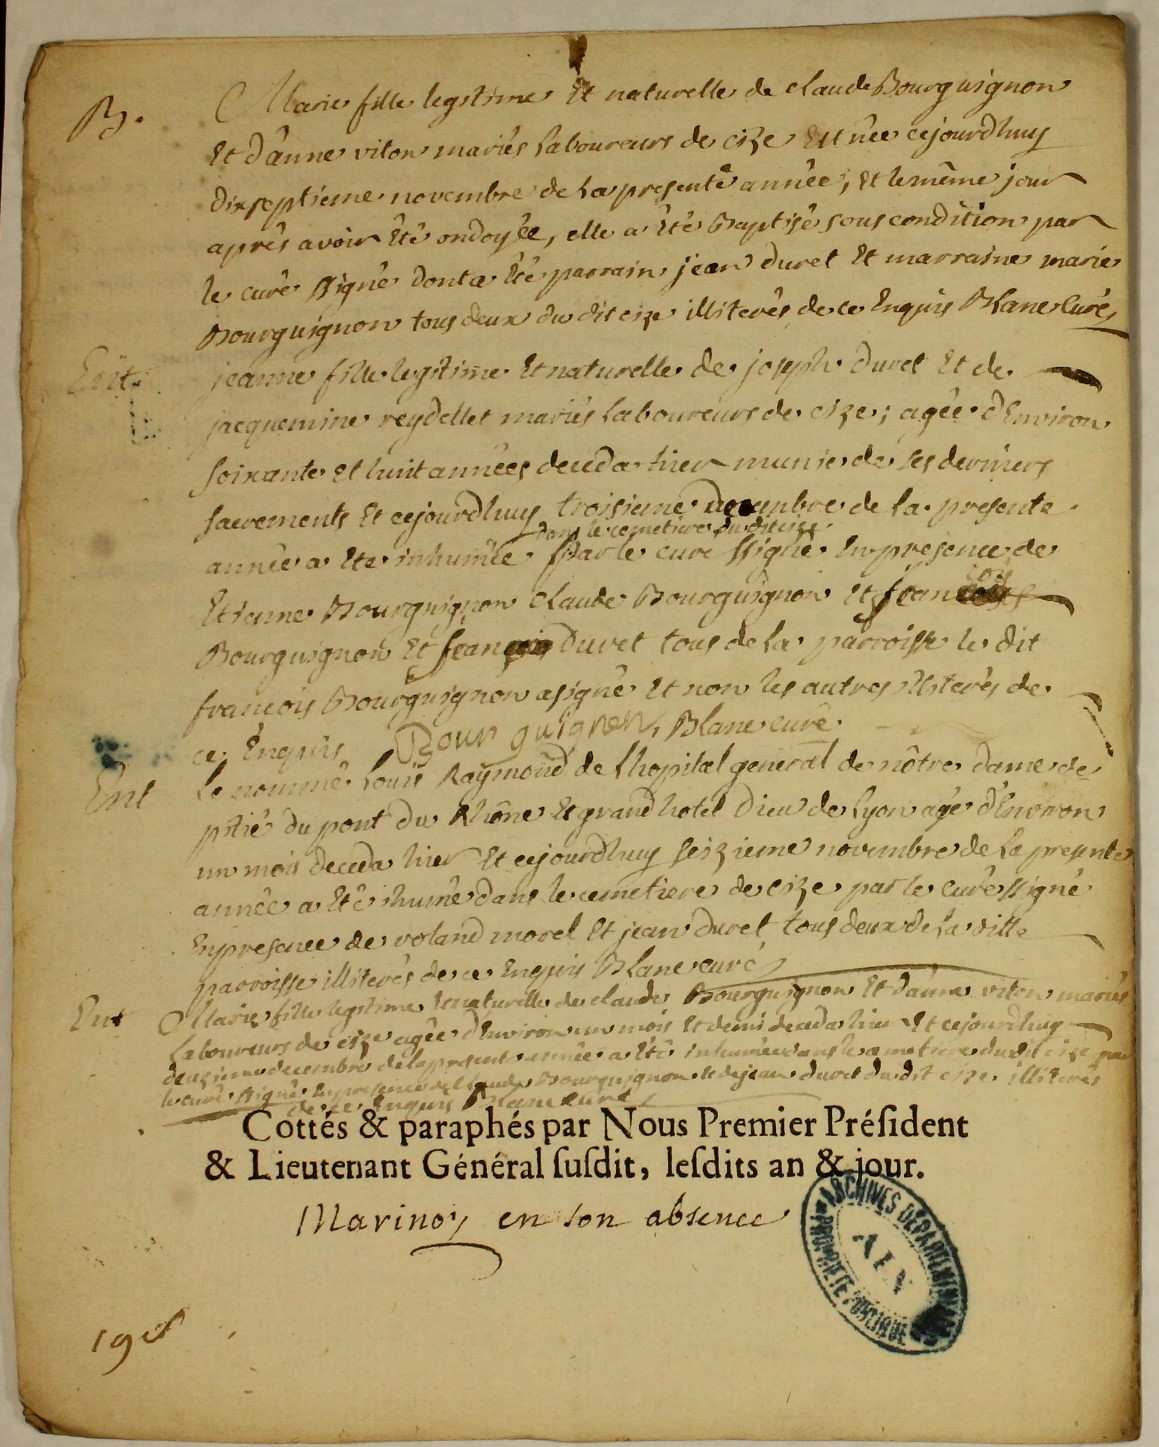 B.
Marie fille legitime Et naturelle de claude Bourguignon
Et d'anne viton mariés laboureurs de cize Est née cejourdhuy
dixseptieme novembre de la presente année, Et le même jour
après avoir Eté ondoyée, elle a Eté Baptisé sous condition par
le curé ssigné dont a Eté parrain jean duret Et marraine marie
Bourguignon tous deux du dit cize illiterés de ce Enquis Blanc Curé
Ent.
jeanne fille legitime Et naturelle de joseph duret Et de
jacquemine reydellet mariés laboureurs de cize; agée d'Environ
soixante et huit années deceda hier munie de ses derniers
sacrements Et cejourdhuy troisieme decembre de la presente
dans le cemetiere du dit cize
année a Ete inhumée par le curé ssigné En presence de
Etienne Bourguignon Claude Bourguignon Et francois
Bourguignon Et francois Duret tous de la parroisse le dit
francois Bourguignon a signé Et non les autres illiterés de
ce Enquis Bourguignon, Blanc curé.
Ent
Le nommé Louis Raymond de Lhopital general de nôtre dame de
pitié du pont du Rhône Et grand hotel Dieu de Lyon agé d'Environ
un mois deceda hier Et cejourdhuy seizieme novembre de la presente
année a Eté ihumé dans le cemetiere de cize par le curé ssigné
En presence de voland morel Et jean duret tous deux de la ditte
parroisse illiterés de ce Enquis Blanc curé
Ent
Marie fille legitime Et naturelle de claude Bourguignon Et d'anne viton mariés
laboureurs de cize agée d'Environ un mois Et demi deceda hier Et cejourdhuy
deuzieme decembre de la presente année a Eté inhumée dans le cemetiere du dit cize par
le curé ssigné En presence de Claude Bourguignon et de jean duret du dit cize illiterés
de ce Enquis Blanc curé
Cottés & paraphés par Nous Premier Préſident
& Lieutenant Général ſuſdit, leſdits an & jour.
en son absence
ARCHIVES DÉPARTEMENTALES
AIN
PROPRIETE PUBLIQUE